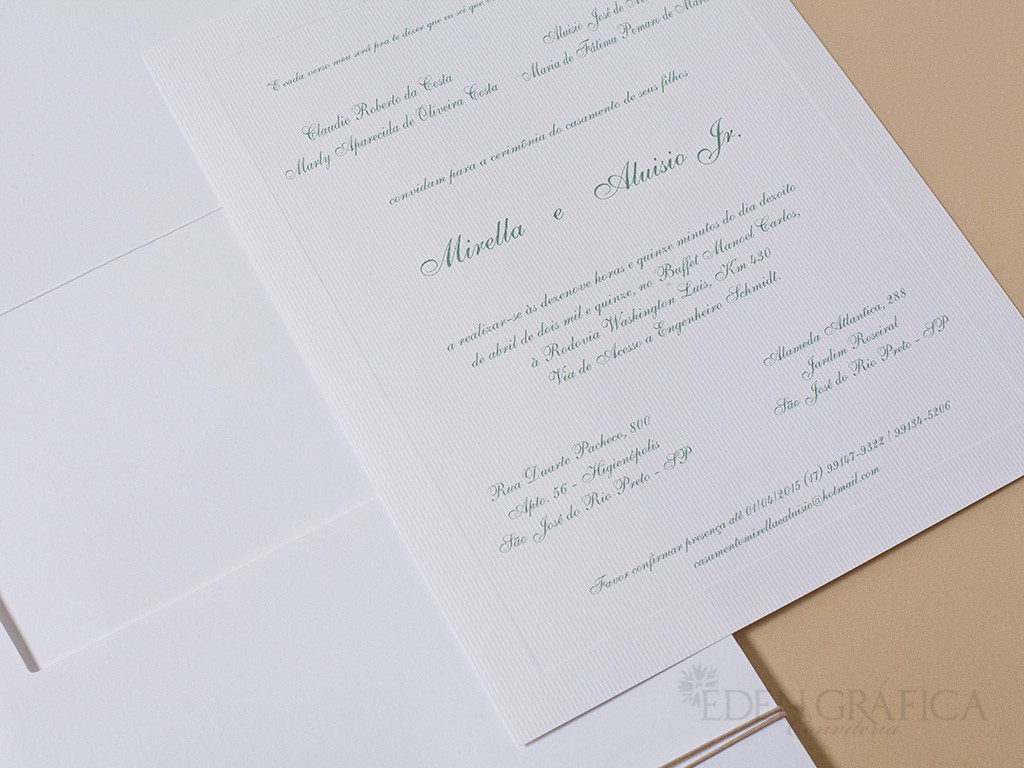 "E cada verso meu será pra te dizer que eu sei que
Claudio Roberto da Costa
Marly Aparecida de Oliveira Costa
Aluisio José de
Maria de Fátima Pomaro de
convidam para a cerimônia do casamento de seus filhos
Mirella e Aluisio Jr.
a realizar-se às dezenove horas e quinze minutos do dia dezoito
de abril de dois mil e quinze, no Buffet Manoel Carlos,
à Rodovia Washington Luis, Km 430
Via de Acesso a Engenheiro Schmidt.
Rua Duarte Pacheco, 800
Apto. 56 - Higienópolis
São José do Rio Preto - SP
Alameda Atlantica, 288
Jardim Roseiral
São José do Rio Preto - SP
Favor confirmar presença até 01/04/2015 (17) 99147-9322 / 99134-5206
casamentomirellaealuisio@hotmail.com
EDEN GRÁFICA
Conviteria